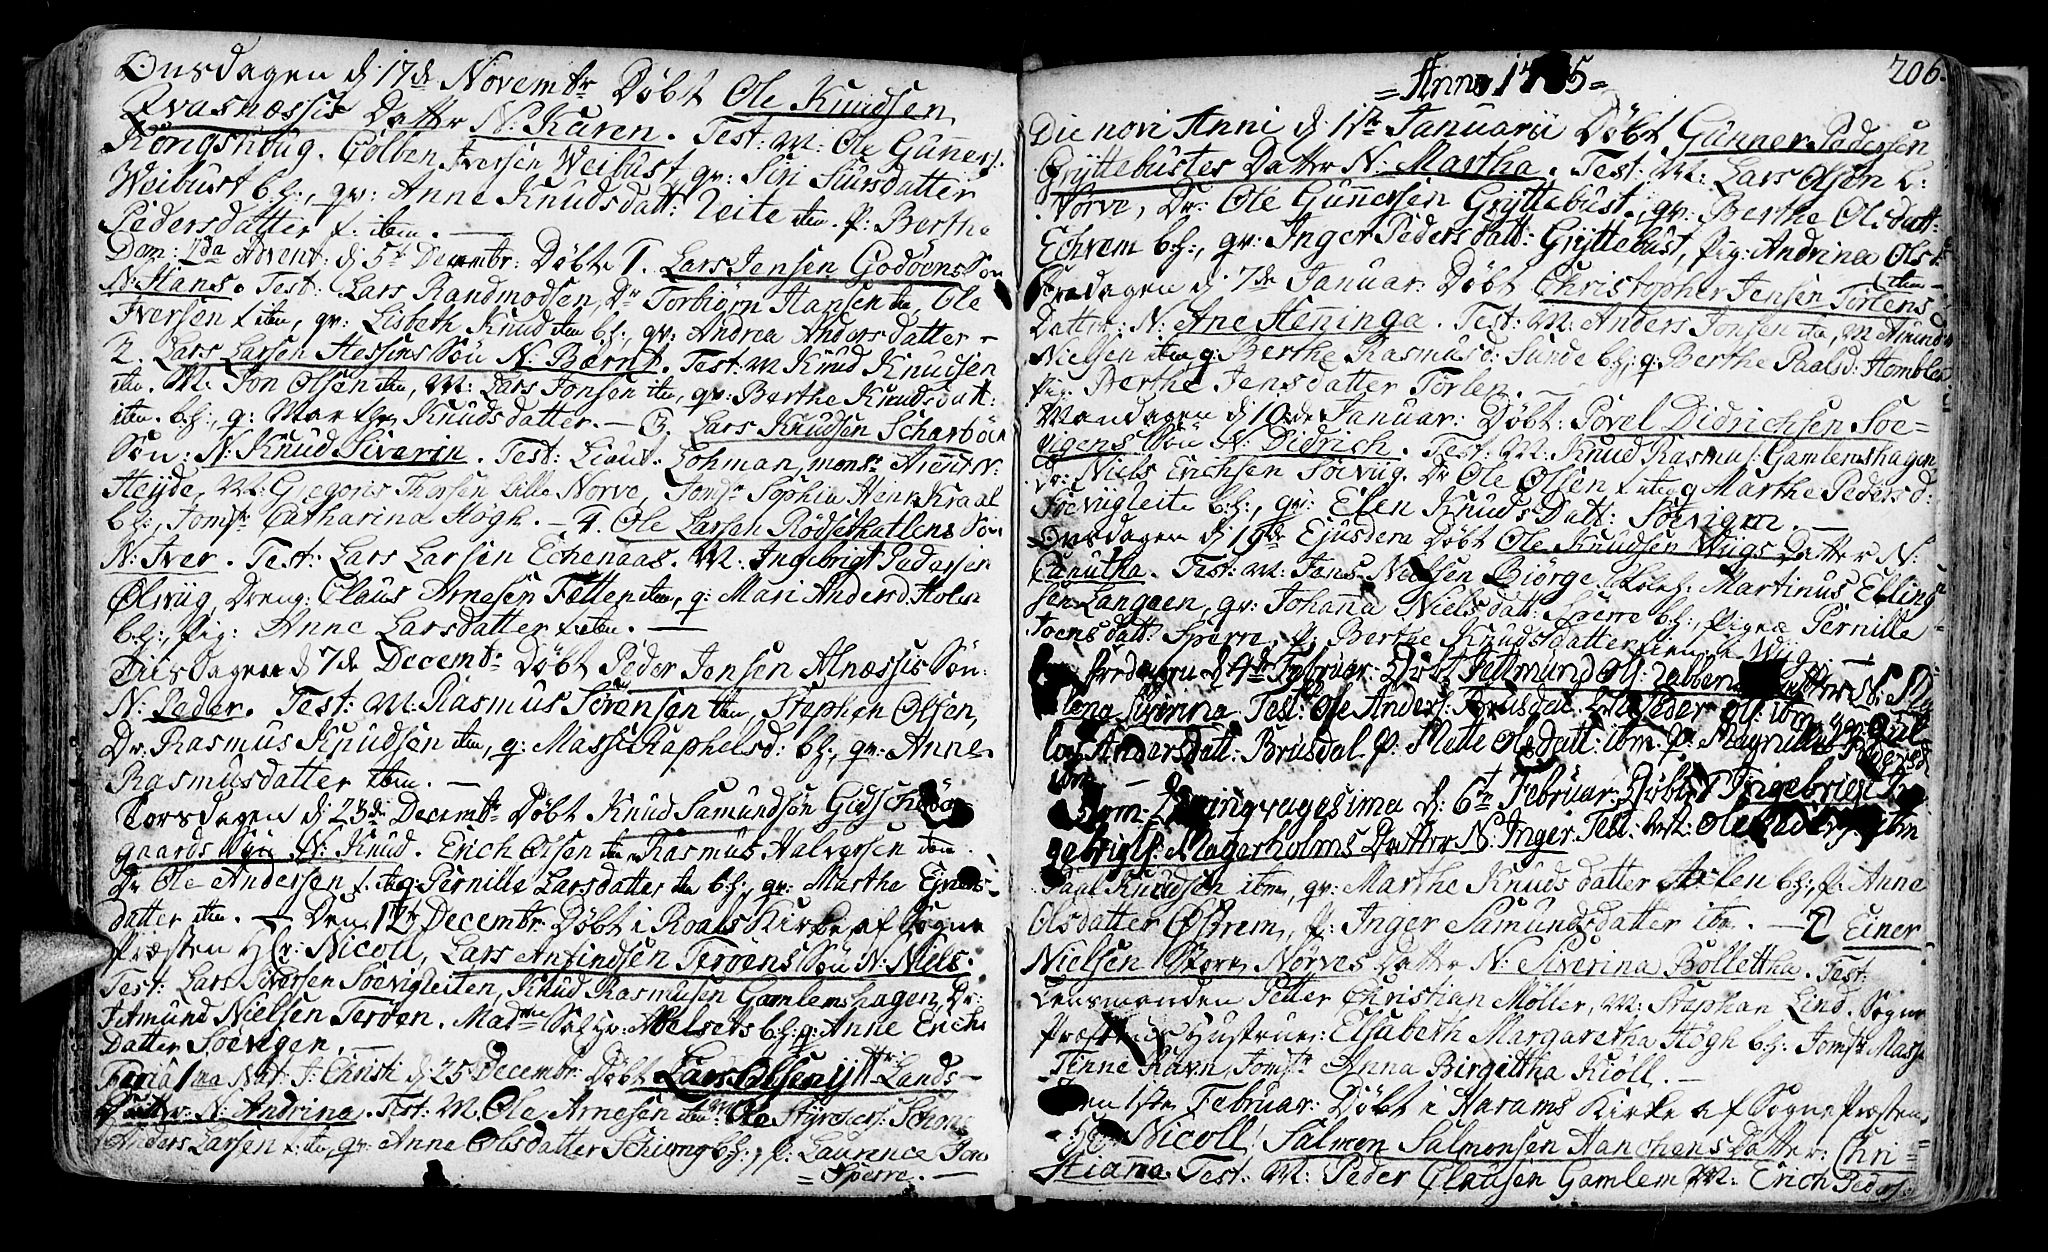 Onsdagen d: 17de Novembr Döbt Ole Knudsen
Qvasnæssis Datter N: Karen. Test: M: Ole Guñers:
Kongshoug. Colben Iversen Weibust, qv: Siri Siursdatter
Weibust b:h:, qv: Anne Knudsdatt: Leite iten. P: Berthe
Pedersdatter f. ibm. —
Dom: 2da Advent: d: 5te Decembr: Döbt 1. Lars Jensen Godöens Sön
N: Hans. Test: Lars Randmodsen, Dr Torbiörn Hansen ibm, Ole
Iversen f iten, qv: Lisbeth Knud iten b:h:, qv: Andrea Andersdatter —
2. Lars Larsen Hessens Sön N: Bærnt. Test: M Knud Knudsen
iten. M. Jon Olsen iten, M: Lars Jonsen iten, qv: Berthe Knudsdatt:
iten. b:h:, q: Marthe Knudsdatter. — 3. Lars Knudsen Scharböe
Sön: N: Knud Siverin. Test: Lieut: Lohman, mons:
Heyde, M: Gregoris Thorsen Lille Norve, Jomfr Sophia Henr. Kraal
b:h:, Jomfr: Catharina Högh. — 4. Ole Larsen Rödsethatlens Sön
N: Iver. Test: Lars Larsen Echenaas. M: Ingebrigt Pedersen
Ølsviig, Dreng: Claus Arnesen Fætten iten, q: Mari Andersd: Holen
b:h:, Pig: Anne Larsdatter f iten. —
Tiirsdagen d: 7de Decembr Döbt Peder Jensen Alnæssis Sön:
N: Peder. Test: M: Rasmus Sörensen iten, Stephen Olsen,
Dr. Rasmus Knudsen iten, q: Massi Raphelsd: b:h:, qv: Anne
Rasmusdatter ibm. —
Torsdagen d: 23de Decembr Döbt Knud Samundsön Gidsche
gaards Sön N: Knud. Erich Olsen iten, Rasmus Halvorsen iten.
Dr Ole Andersen f. iten q: Pernille Larsdatter iten b:h:, qv: Marthe
datter iten. — Den 12te Decembr Döbt i Roals Kirke af Sogne
Præsten Hr: Nicoll, Lars Anfindsen Teröens Sön N: Niels:
Test: Lars Iversen Soevigleiten, Knud Rasmusen Gamlemshagen, Dr:
Amund Nielsen Teröen. Madme Sal. qv: Abelsets b:h: q: Anne Erichs
Datter Soevigen. —
Feria 1ma Nat: J: Christi d: 25 Decembr. Döbt Lars Olsen Ytt: Lands—
Datter N: Andrina. Test: M: Ole Arnesen iten. M: Ole Styrchers: Schong
Anders Larsen f: iten, qv: Anne Olsdatter Schiong b:h:, p: Laurence Jon
= Sperre. —
= Anno 1785 =
206
Die novi Anni d: 1te Januarii Döbt Guñer Pedersen
Gryttebustes Datter N: Martha. Test: M: Lars Olsen L:
Norve, Dr: Ole Guñersen Gryttebust, qv: Berthe Olsdatt:
Echrem b:h:, qv: Inger Pedersdatt: Gryttebust, Pig: Andrina Olsd:
iten —
Fredagen d: 7de Januar: Döbt Christopher Jensen Tørlens
Datter: N: Ane Heñinga. Test: M: Anders Jonsen iten, M: Amund
Nielsen iten q: Berthe Rasmusd: Sunde b:h:, q: Berthe Paalsd: Homblen
Pig: Berthe Jensdatter Törlen. —
Mandagen d: 10de Januar: Döbt: Povel Didrichsen Soe=
vigens Sön N: Didrich. Test: M: Knud Rasmus: Gamlemshagen,
Dr: Niels Erichsen Soeviig. Dr Ole Olsen f iten q Marthe Pedersd:
Soeviigleite b:h:, qv: Elen Knuds Datt: Soevigen. —
Onsdagen d: 19de Ejusdem Döbt Ole Knudsen Wiigs Datter N:
Canutha. Test: M: Jens Nielsen Biörge, Martinus Elling
sen Langøen, qv: Johaña Nielsdatt: Sperre b:h:, Pigerne Pernille
Joensdatt: Sperre, P: Berthe Knudsdatter Wiig. —
Fredagen d: 4de Februar: Döbt Aslemund Ols: datter N:
lena Siverina. Test: Ole Anders: Brusdal. Peder Ols: ibm.
Andersdatt: Brusdal. P: Mette Olsdatt: ibm. P: Magnille Pedersd:
ibm —
Dom: Quinqvagesima d: 6te Februar: Döbt 1 Ingebrict In
gebrigts: Magerholms Datter N: Inger. Test: M: Ole Peders: ibm
Paal Knudsen ibm, qv: Marthe Knudsdatter b:h:, P: Anne
Olsdatter Østrem, P: Inger Samundsdatter ibm. — 2 Einer
Nielsen Store Nörves Datter N: Siverina Bollettha. Test:
Lensmanden Peter Christian Möller, M: Stephan Lind. Sogne
Præstens Hustrue: Elisabeth Margaretha Högh b:h: Jomfr Masse
Tinne Ravn, Jomfr Anna Birgittha Kiöll. —
Den 1ste Februar: Döbt i Harams Kirke af Sogne Præsten
Hr Nicoll, Salmon Salmonsen Hanchens Datter: Chri=
stiaña. Test: M: Peder Clausen Gamlem M: Erich Peders: